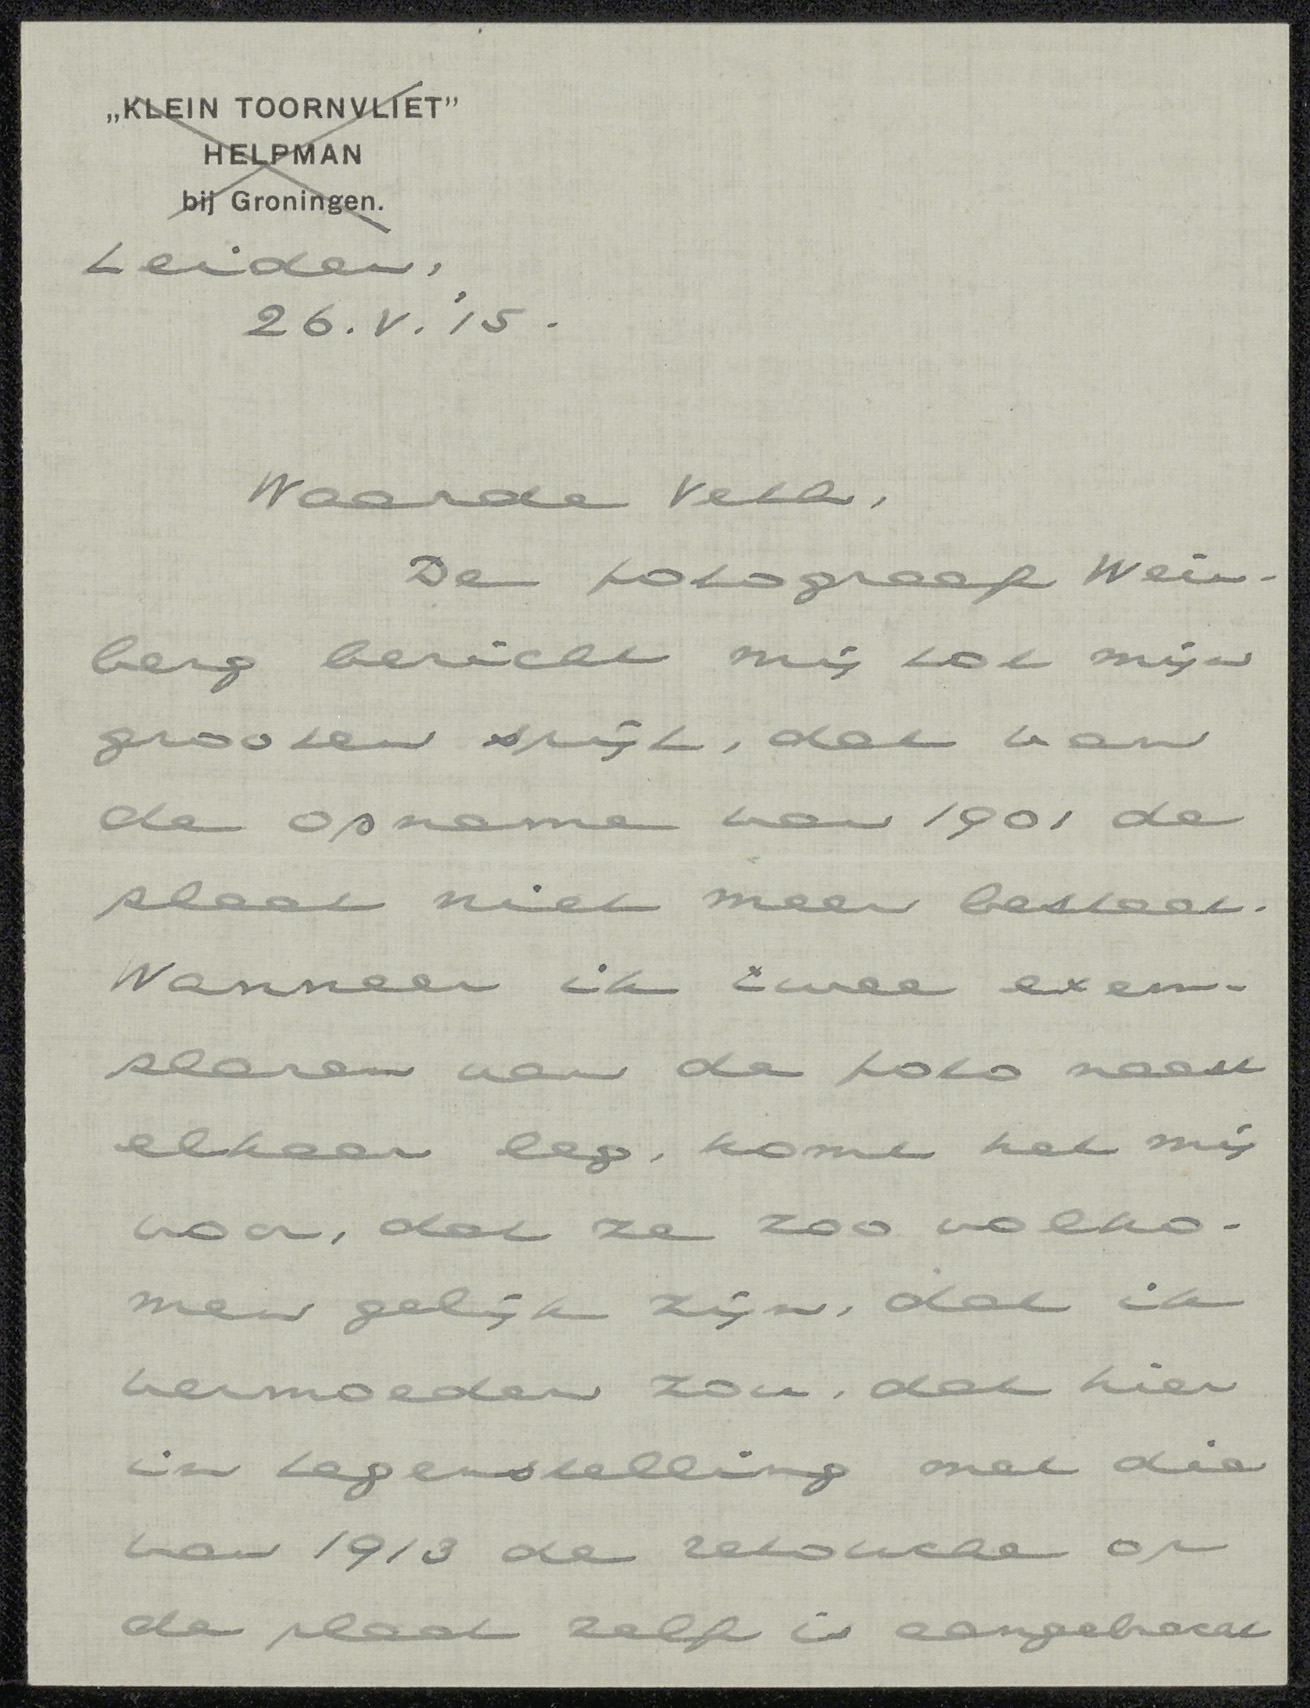 „KLEIN TOORNVLIET”
HELPMAN
bij Groningen.
Leiden,
26.V.'15.
Waarde Veth,
De fotograaf Wein-
berg bericht mij tot mijn
grooten spijt, dat van
de opname van 1901 de
plaat niet meer bestaat.
Wanneer ik twee exem-
plaren van de foto naast
elkaar leg, komt het mij
voor, dat ze zoo volko-
men gelijk zijn, dat ik
vermoeden zou, dat hier
in tegenstelling met die
van 1913 de retouche op
de plaat zelf is aangebracht